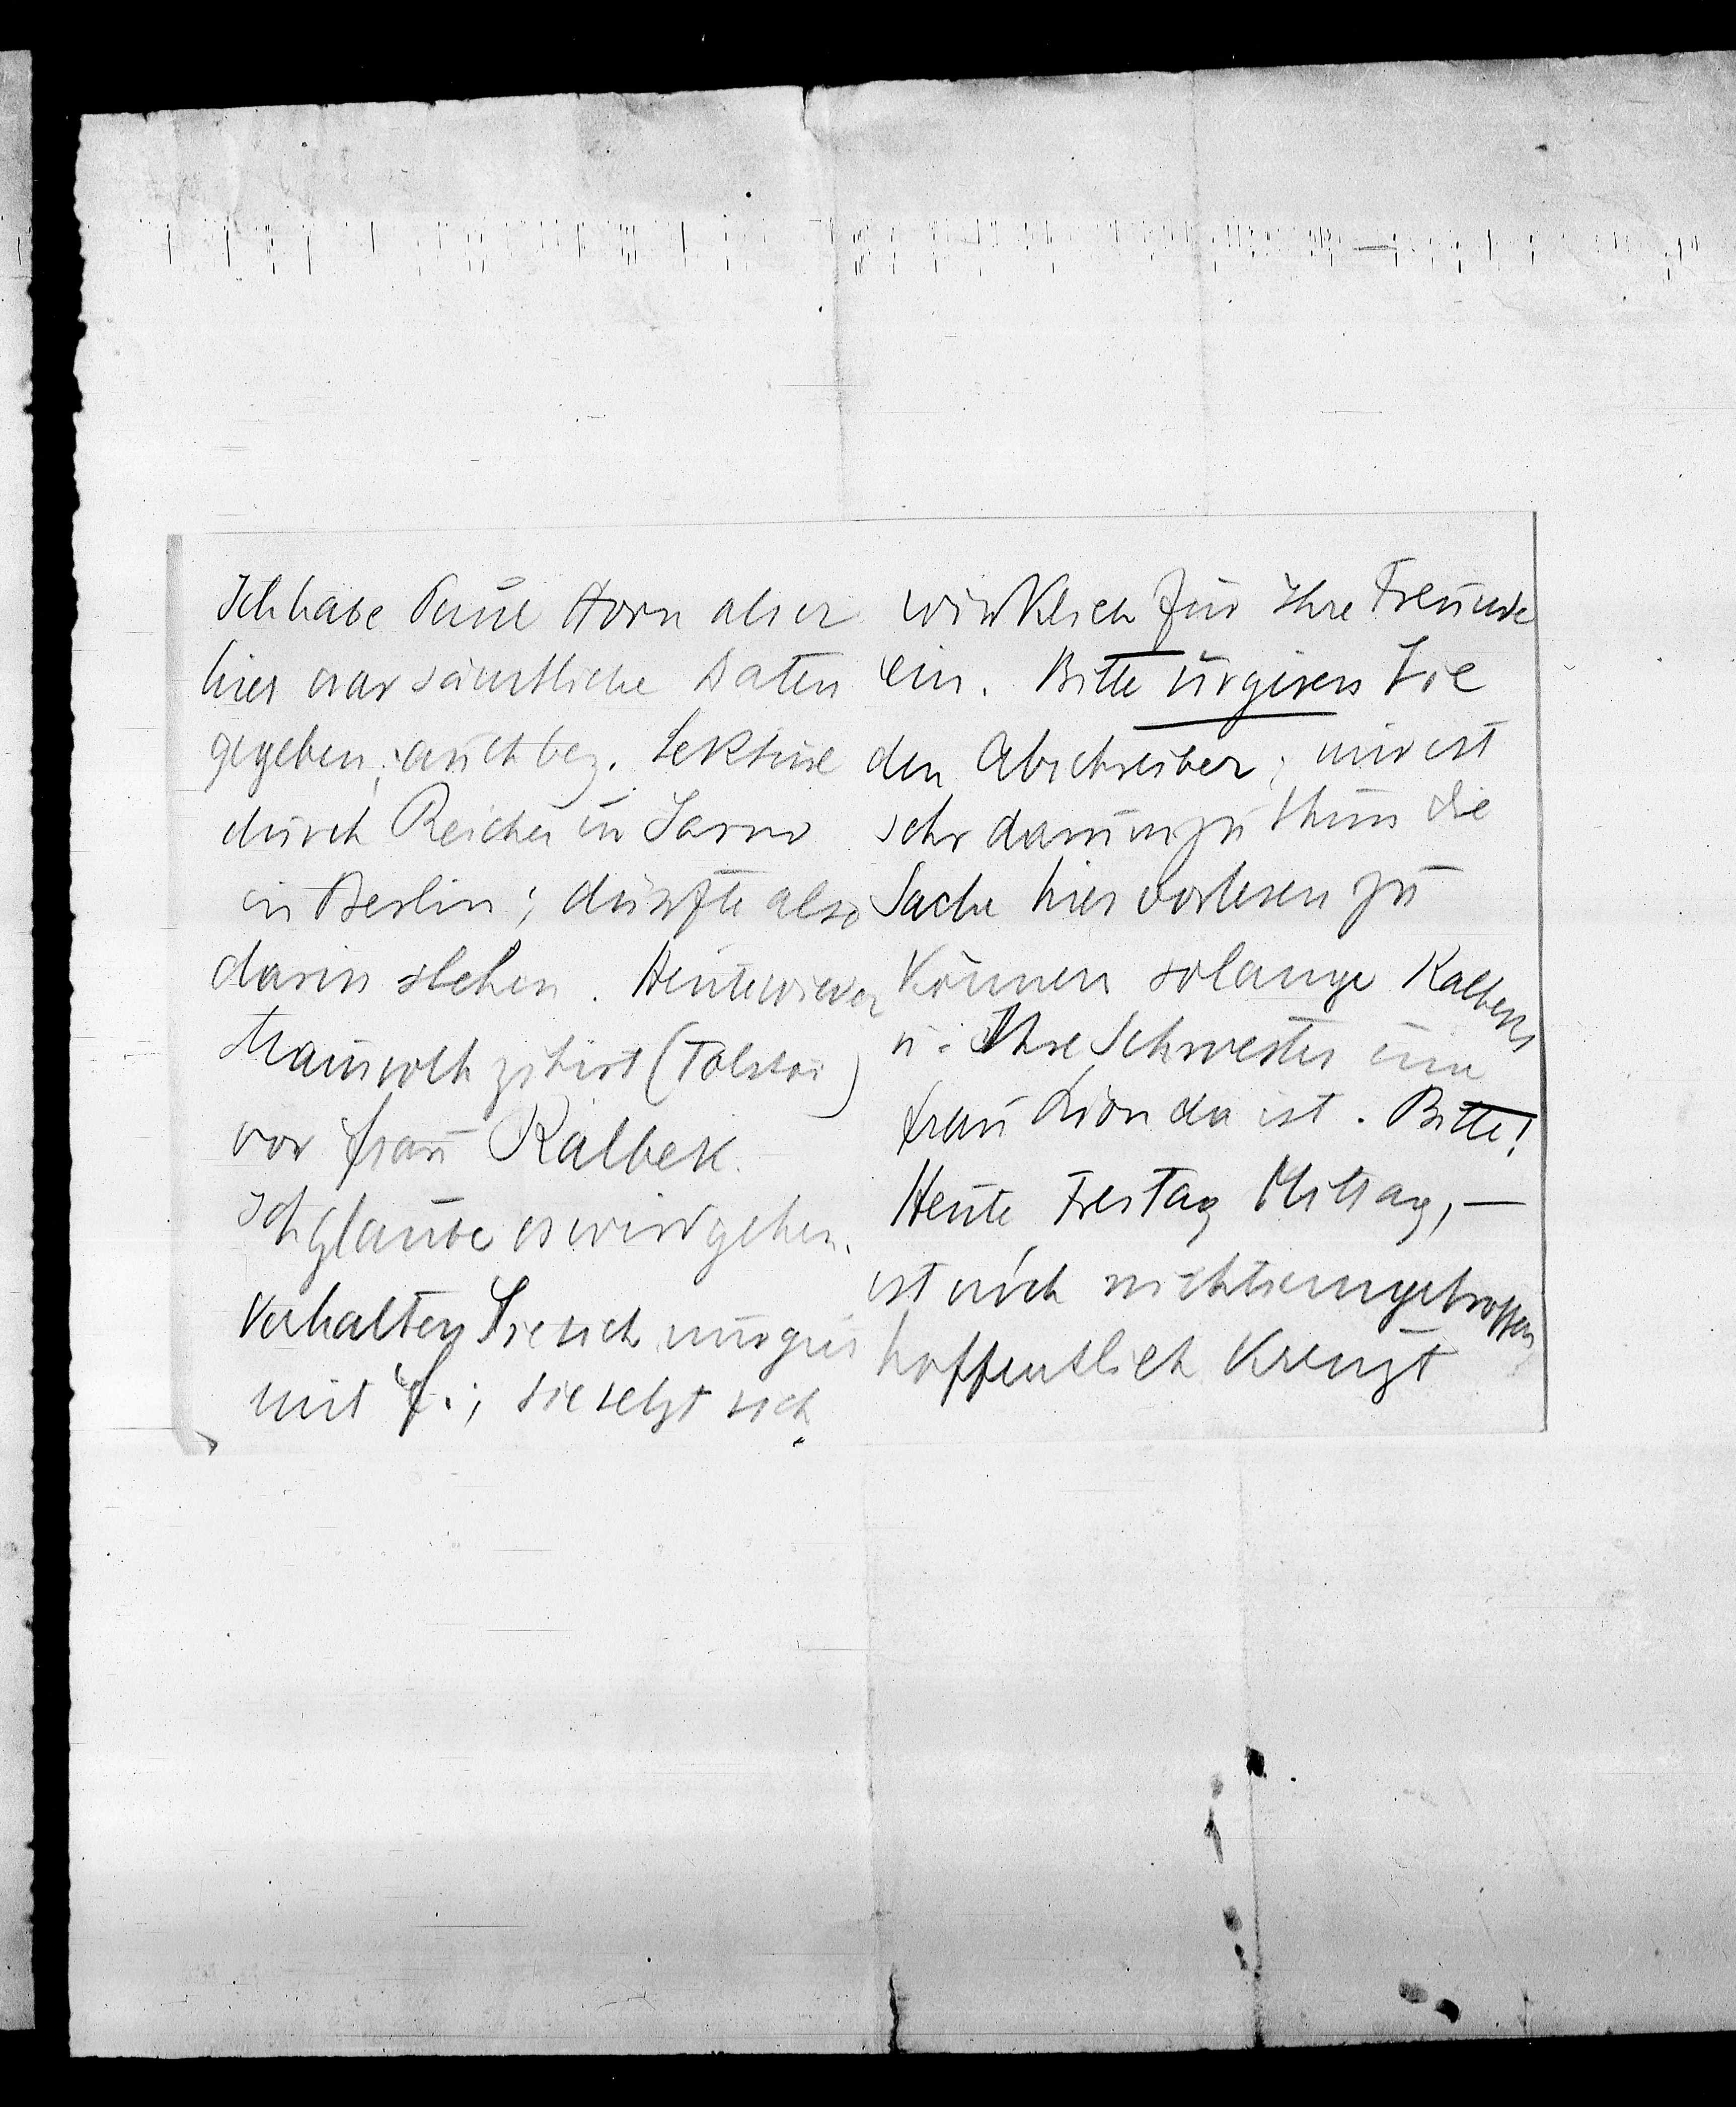 Ich habe Paul Horn als er
hier war sämtliche Daten
gegeben; auch bez. Lektüre
durch Reicher in
in Berlin; dürfte also
darin stehen. Heute wieder
zitirt (Tolstoi)
vor Frau Kalbek.
Ich glaube es wird gehen.
Verhalten Sie sich nur gut
mit F.; sie setzt sich
wirklich für Ihre Freunde
ein. Bitte urgiren Sie
den Abschreiber; mir ist
sehr darum zu thun die
Sache hier vorlesen zu
können solange Kalbeks
u. Ihre Schwester
Frau Lion da ist. Bitte!
Heute Freitag Mittag, —
ist noch nichts eingetroffen,
hoffentlich kreuzt